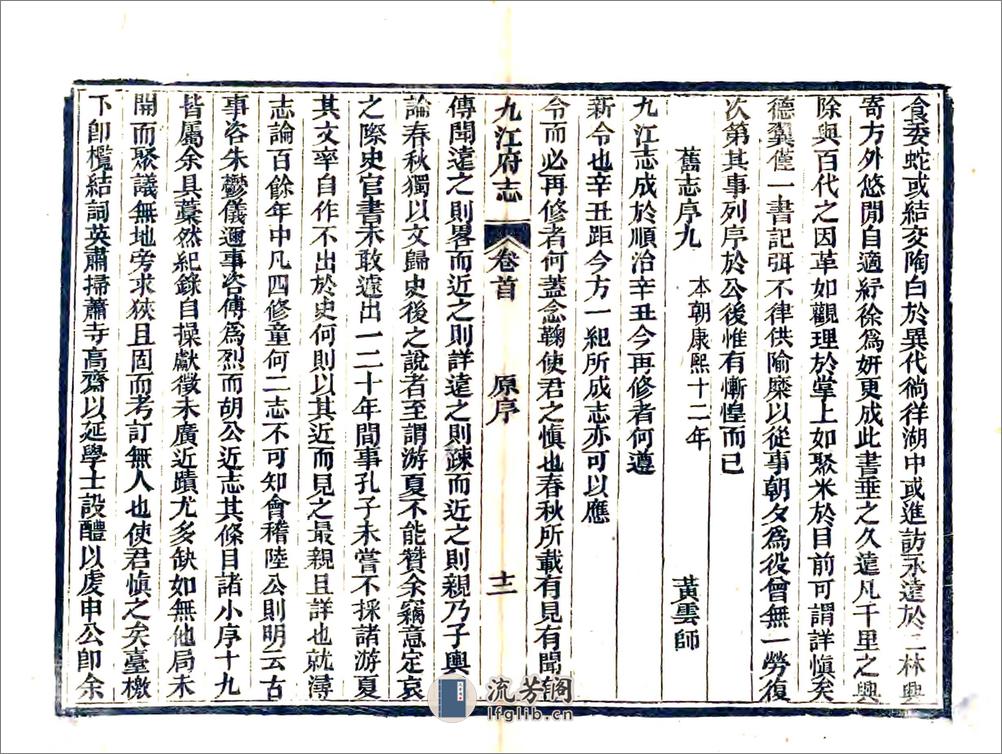 食委蛇或結交陶白於異代徜徉湖中或進訪永遠於二林興
寄方外悠閒自適紓徐為妍更成此書垂之久遠凡千里之輿
除與百代之因革如觀理於掌上如聚米於目前可謂詳慎矣
德翼僅一書記弭不律供隃麋以從事朝夕為役曾無一勞復
次第其事列序於公後惟有慚惶而已
舊志序九　本朝康熙十二年　黃雲師
九江志成於順治辛丑今再修者何遵
新令也辛丑距今方一紀所成志亦可以應
令而必再修者何蓋念鞠使君之慎也春秋所載有見有聞有
九江府志　卷首　原序　十二
傳聞遠之則畧而近之則詳遠之則疎而近之則親乃子輿
論春秋獨以文歸史後之說者至謂游夏不能贊余竊意定哀
之際史官書未敢遽出一二十年間事孔子未嘗不採諸游夏
其文率自作不出於史何則以其近而見之最親且詳也就潯
志論百餘年中凡四修童何二志不可知會稽陸公則明云古
事咨朱鬱儀邇事咨傅為烈而胡公近志其條目諸小序十九
皆屬余具藁然紀錄自操獻徵未廣近蹟尤多缺如無他局未
開而聚議無地旁求狹且固而考訂無人也使君慎之矣臺檄
下卽欖結詞英肅掃蕭寺高齋以延學士設醴以處申公卽余
流芳閣
lfglib.cn